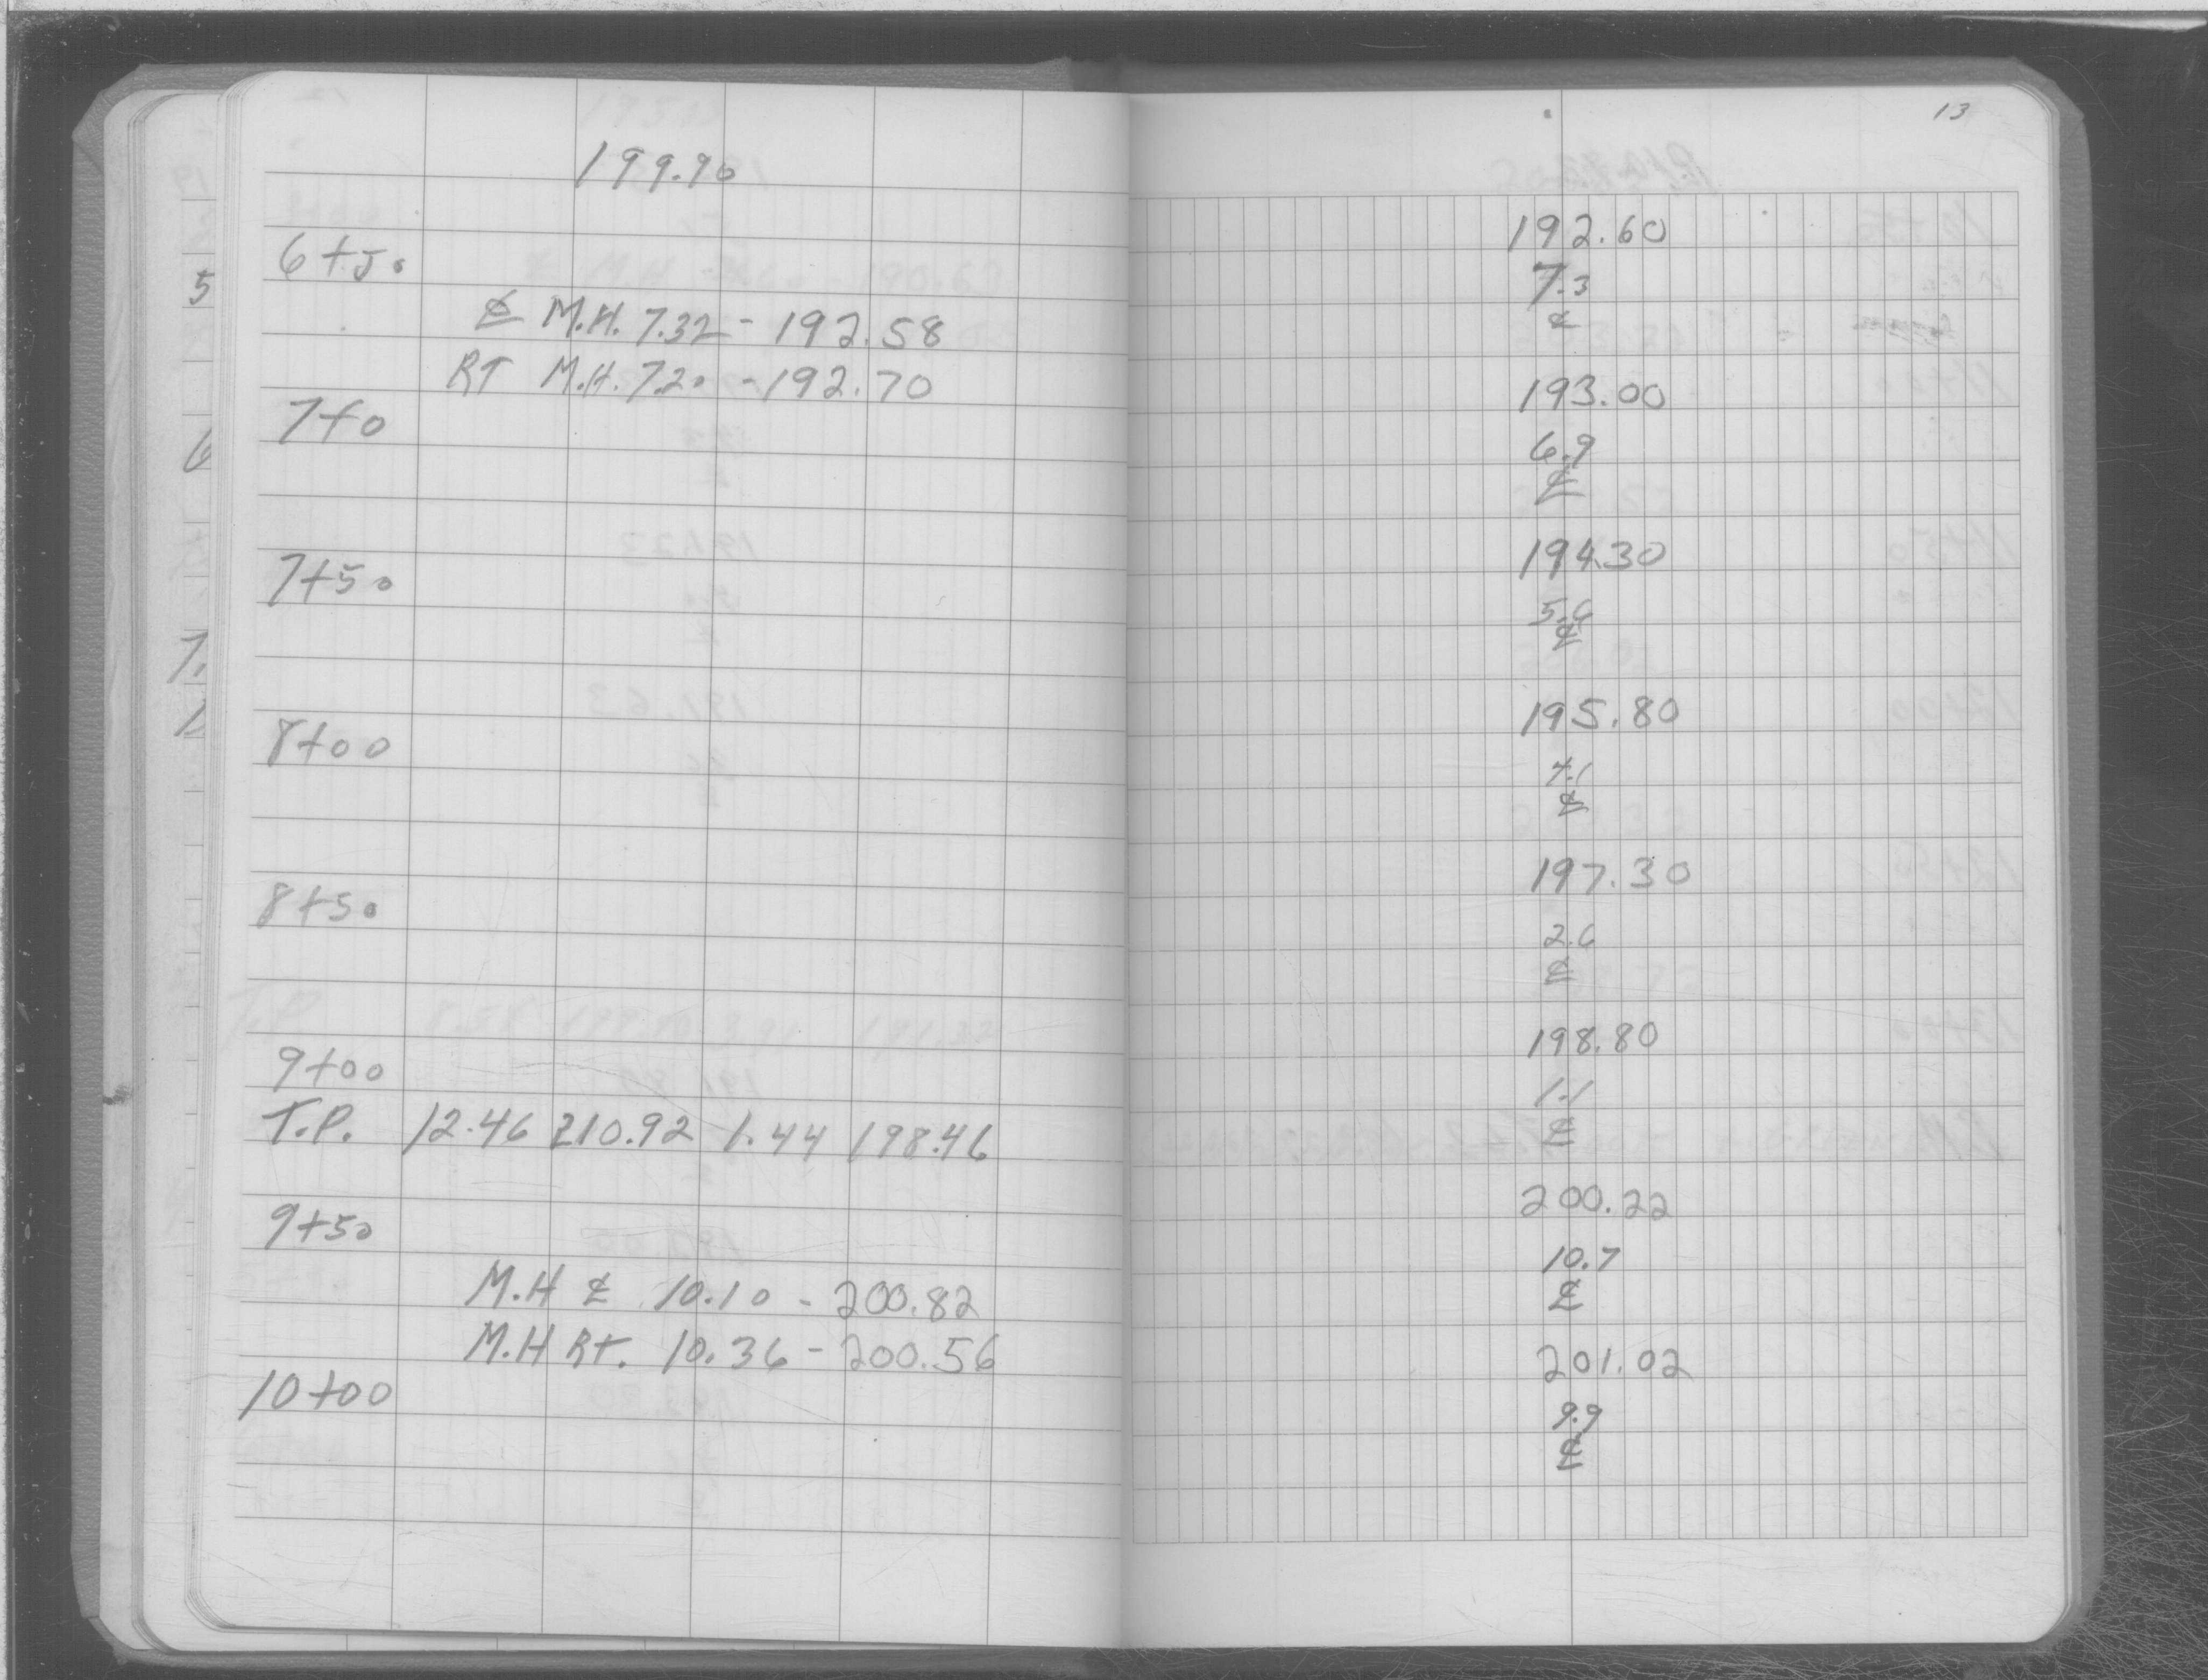 199.90
6+50
℄ M.H. 7.32 - 192.58
RT M.H. 7.20 - 192.70
7+0
7+50
8+00
8+50
9+00
T.P. 12.46 210.92 1.44 198.46
9+50
M.H ℄ 10.10 - 200.82
M.H Rt. 10.36 - 200.56
10+00
13
192.60
7.3
℄
193.00
6.9
℄
194.30
5.6
℄
195.80
4.1
℄
197.30
2.6
℄
198.80
1.1
℄
200.22
10.7
℄
201.02
9.9
℄
5
6
7.